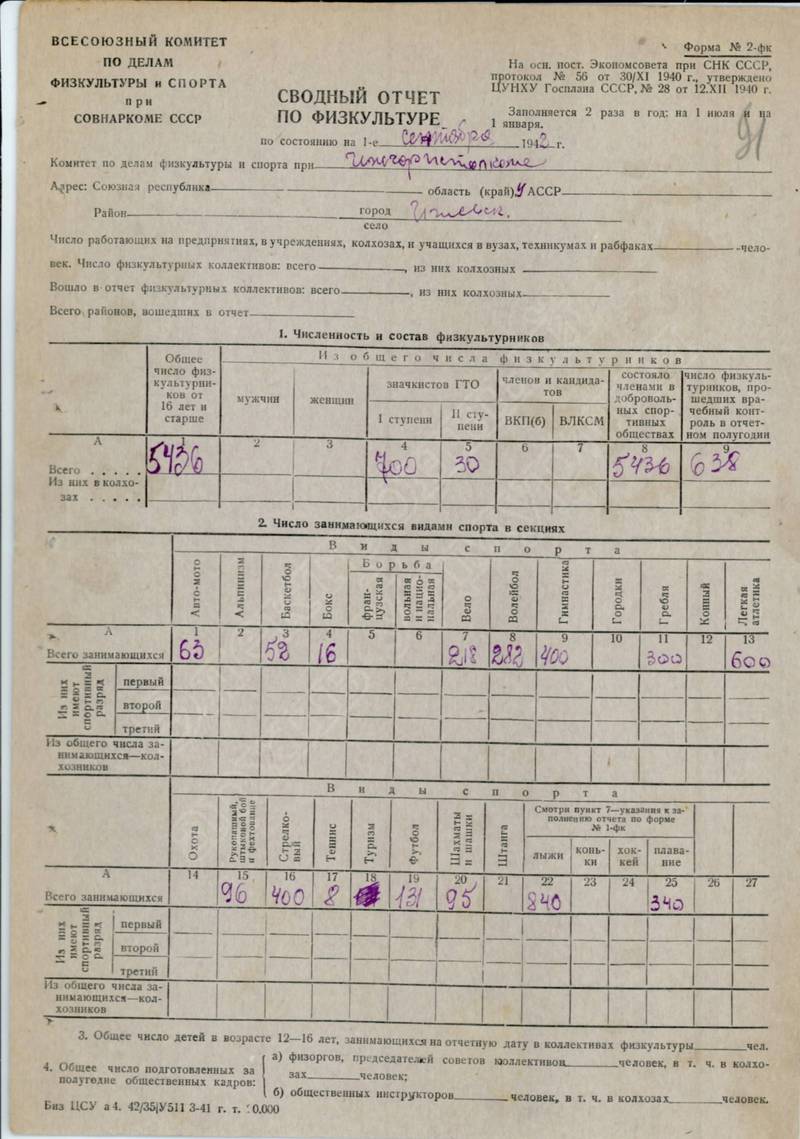 ВСЕСОЮЗНЫЙ КОМИТЕТ
ПО ДЕЛАМ
ФИЗКУЛЬТУРЫ и СПОРТА
при
СОВНАРКОМЕ СССР
Форма № 2-фк
На осн. пост. Экономсовета при СНК СССР,
протокол № 56 от 30/XI 1940 г., утверждено
ЦУНХУ Госплана СССР, № 28 от 12.XII 1940 г.
Заполняется 2 раза в год: на 1 июля и на
1 января.
91
СВОДНЫЙ ОТЧЕТ
ПО ФИЗКУЛЬТУРЕ
по состоянию на 1-е сентября 1942 г.
Комитет по делам физкультуры и спорта при
Адрес: Союзная республика область (край) УАССР
Район город Ижевск.
село
Число работающих на предприятиях, в учреждениях, колхозах, и учащихся в вузах, техникумах и рабфаках -чело-
век. Число физкультурных коллективов: всего , из них колхозных
Вошло в отчет физкультурных коллективов: всего , из них колхозных
Всего районов, вошедших в отчет
1. Численность и состав физкультурников
Общее число физ-культурни-ков от 16 лет и старше
Из общего числа физкультурников
мужчин женщин
значкистов ГТО
I ступени II сту-пени
членов и кандида-тов
ВКП(б) ВЛКСМ
состояло членами в доброволь-ных спор-тивных обществах
число физкуль-турников, про-шедших вра-чебный конт-роль в отчет-ном полугодии
А 1 2 3 4 5 6 7 8 9
Всего . . . . . 5436 700 30 5436 638
Из них в колхо-
зах . . . . .
2. Число занимающихся видами спорта в секциях
Виды спорта
Авто-мото Альпинизм Баскетбол Бокс Борьба французская вольная и нацио-нальная Вело Волейбол Гимнастика Городки Гребля Конный Легкая атлетика
А 1 2 3 4 5 6 7 8 9 10 11 12 13
Всего занимающихся 63 52 16 212 282 400 300 600
Из них имеют спортивный разряд
первый
второй
третий
Из общего числа за-
нимающихся—кол-
хозников
Виды спорта
Охота Рукопашный, штыковой бой и фехтование Стрелко-вый Теннис Туризм Футбол Шахматы и шашки Штанга
Смотри пункт 7—указания к за-
полнению отчета по форме
№ 1-фк
лыжи конь-ки хок-кей плава-ние
А 14 15 16 17 18 19 20 21 22 23 24 25 26 27
Всего занимающихся 96 400 8 131 95 840 340
Из них имеют спортивный разряд
первый
второй
третий
Из общего числа за-
нимающихся—кол-
хозников
3. Общее число детей в возрасте 12—16 лет, занимающихся на отчетную дату в коллективах физкультуры чел.
4. Общее число подготовленных за
полугодие общественных кадров:
а) физоргов, председателей советов коллективов человек, в т. ч. в колхо-
зах человек;
б) общественных инструкторов человек, в т. ч. в колхозах человек.
Биз ЦСУ а 4. 42/35|У511 3-41 г. т. 10.000